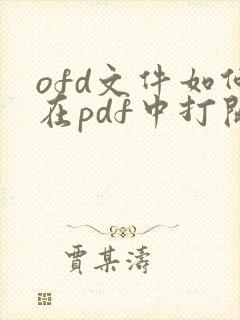 ofd文件如何
在pdf中打开
贾某涛